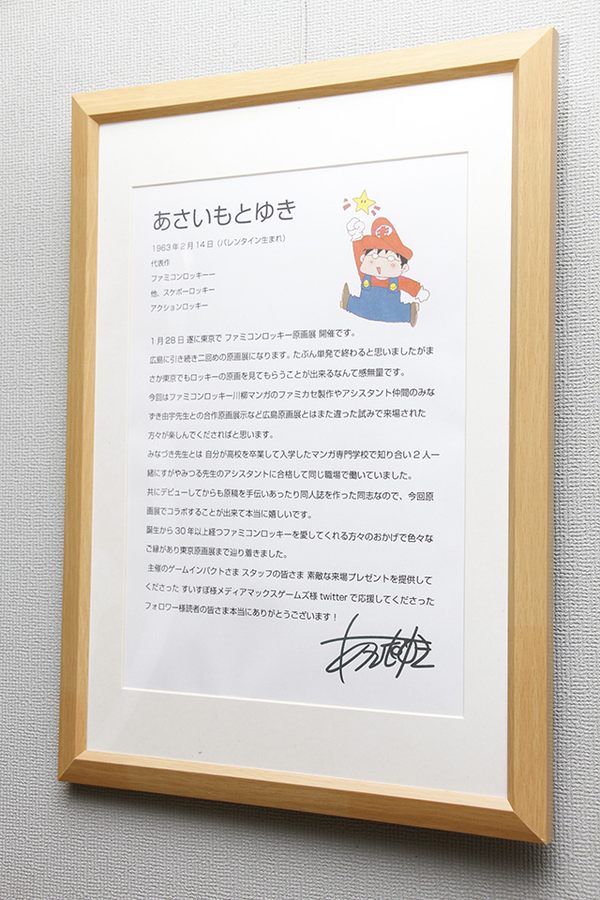 あさいもとゆき
1963年2月14日（バレンタイン生まれ）
代表作
ファミコンロッキーー
他、スケボーロッキー
アクションロッキー
1月28日 遂に東京で ファミコンロッキー原画展 開催です。
広島に引き続き二回めの原画展になります。たぶん単発で終わると思いましたがま
さか東京でもロッキーの原画を見てもらうことが出来るなんて感無量です。
今回はファミコンロッキー川柳マンガのファミカセ製作やアシスタント仲間のみな
ずき由宇先生との合作原画展示など広島原画展とはまた違った試みで来場された
方々が楽しんでくださればと思います。
みなづき先生とは 自分が高校を卒業して入学したマンガ専門学校で知り合い2人一
緒にすがやみつる先生のアシスタントに合格して同じ職場で働いていました。
共にデビューしてからも原稿を手伝いあったり同人誌を作った同志なので、今回原
画展でコラボすることが出来て本当に嬉しいです。
誕生から30年以上経つファミコンロッキーを愛してくれる方々のおかげで色々な
ご縁があり東京原画展まで辿り着きました。
主催のゲームインパクトさま スタッフの皆さま 素敵な来場プレゼントを提供して
くださった すいすぽ様メディアマックスゲームズ様 twitterで応援してくださった
フォロワー様読者の皆さま本当にありがとうございます！
あさいもとゆき